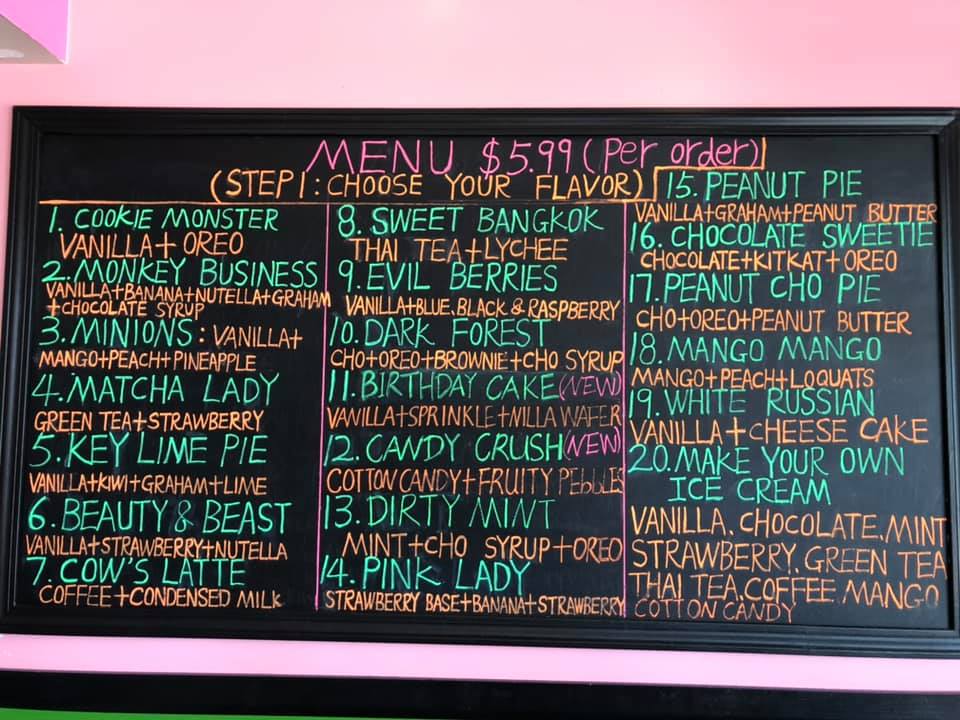 MENU $5.99 (Per order)
(STEP 1: CHOOSE YOUR FLAVOR)
1. COOKIE MONSTER
VANILLA+ OREO
2. MONKEY BUSINESS
VANILLA+BANANA+NUTELLA+GRAHAM
+CHOCOLATE SYRUP
3. MINIONS: VANILLA+
MANGO+PEACH+PINEAPPLE
4. MATCHA LADY
GREEN TEA+STRAWBERRY
5. KEY LIME PIE
VANILLA+KIWI+GRAHAM+LIME
6. BEAUTY & BEAST
VANILLA+STRAWBERRY+NUTELLA
7. COW'S LATTE
COFFEE+CONDENSED MILK
8. SWEET BANGKOK
THAI TEA+LYCHEE
9. EVIL BERRIES
VANILLA+BLUE. BLACK & RASPBERRY
10. DARK FOREST
CHO+OREO+BROWNIE+CHO SYRUP
11. BIRTHDAY CAKE (NEW)
VANILLA+SPRINKLE+NILLA WAFER
12. CANDY CRUSH (NEW)
COTTON CANDY+FRUITY PEbbLES
13. DIRTY MINT
MINT+CHO SYRUP+OREO
14. PINK LADY
STRAWBERRY BASE+BANANA+STRAWBERRY
15. PEANUT PIE
VANILLA+GRAHAM+PEANUT BUTTER
16. CHOCOLATE SWEETIE
CHOCOLATE+KITKAT+OREO
17. PEANUT CHO PIE
CHO+OREO+PEANUT BUTTER
18. MANGO MANGO
MANGO+PEACH+LOQUATS
19. WHITE RUSSIAN
VANILLA+CHEESE CAKE
20. MAKE YOUR OWN
ICE CREAM
VANILLA. CHOCOLATE. MINT
STRAWBERRY. GREEN TEA
THAI TEA. COFFEE MANGO
COTTON CANDY